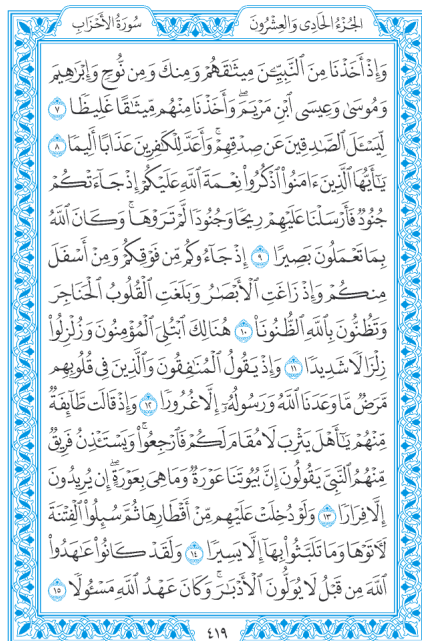 الجُزْءُ الحَادِي وَالعِشْرُونَ
سُورَةُ الأَحْزَابِ
وَإِذۡ أَخَذۡنَا مِنَ ٱلنَّبِيِّـۧنَ مِيثَٰقَهُمۡ وَمِنكَ وَمِن نُّوحٖ وَإِبۡرَٰهِيمَ
وَمُوسَىٰ وَعِيسَى ٱبۡنِ مَرۡيَمَۖ وَأَخَذۡنَا مِنۡهُم مِّيثَٰقًا غَلِيظٗا ٧
لِّيَسۡـَٔلَ ٱلصَّٰدِقِينَ عَن صِدۡقِهِمۡۚ وَأَعَدَّ لِلۡكَٰفِرِينَ عَذَابًا أَلِيمٗا ٨
يَٰٓأَيُّهَا ٱلَّذِينَ ءَامَنُواْ ٱذۡكُرُواْ نِعۡمَةَ ٱللَّهِ عَلَيۡكُمۡ إِذۡ جَآءَتۡكُمۡ
جُنُودٞ فَأَرۡسَلۡنَا عَلَيۡهِمۡ رِيحٗا وَجُنُودٗا لَّمۡ تَرَوۡهَاۚ وَكَانَ ٱللَّهُ
بِمَا تَعۡمَلُونَ بَصِيرًا ٩ إِذۡ جَآءُوكُم مِّن فَوۡقِكُمۡ وَمِنۡ أَسۡفَلَ
مِنكُمۡ وَإِذۡ زَاغَتِ ٱلۡأَبۡصَٰرُ وَبَلَغَتِ ٱلۡقُلُوبُ ٱلۡحَنَاجِرَ
وَتَظُنُّونَ بِٱللَّهِ ٱلظُّنُونَا۠ ١٠ هُنَالِكَ ٱبۡتُلِيَ ٱلۡمُؤۡمِنُونَ وَزُلۡزِلُواْ
زِلۡزَالٗا شَدِيدٗا ١١ وَإِذۡ يَقُولُ ٱلۡمُنَٰفِقُونَ وَٱلَّذِينَ فِي قُلُوبِهِم
مَّرَضٞ مَّا وَعَدَنَا ٱللَّهُ وَرَسُولُهُۥٓ إِلَّا غُرُورٗا ١٢ وَإِذۡ قَالَت طَّآئِفَةٞ
مِّنۡهُمۡ يَٰٓأَهۡلَ يَثۡرِبَ لَا مُقَامَ لَكُمۡ فَٱرۡجِعُواْۚ وَيَسۡتَـٔۡذِنُ فَرِيقٞ
مِّنۡهُمُ ٱلنَّبِيَّ يَقُولُونَ إِنَّ بُيُوتَنَا عَوۡرَةٞ وَمَا هِيَ بِعَوۡرَةٍۖ إِن يُرِيدُونَ
إِلَّا فِرَارٗا ١٣ وَلَوۡ دُخِلَتۡ عَلَيۡهِم مِّنۡ أَقۡطَارِهَا ثُمَّ سُئِلُواْ ٱلۡفِتۡنَةَ
لَأٓتَوۡهَا وَمَا تَلَبَّثُواْ بِهَآ إِلَّا يَسِيرٗا ١٤ وَلَقَدۡ كَانُواْ عَٰهَدُواْ
ٱللَّهَ مِن قَبۡلُ لَا يُوَلُّونَ ٱلۡأَدۡبَٰرَۚ وَكَانَ عَهۡدُ ٱللَّهِ مَسۡـُٔولٗا ١٥
٤١٩